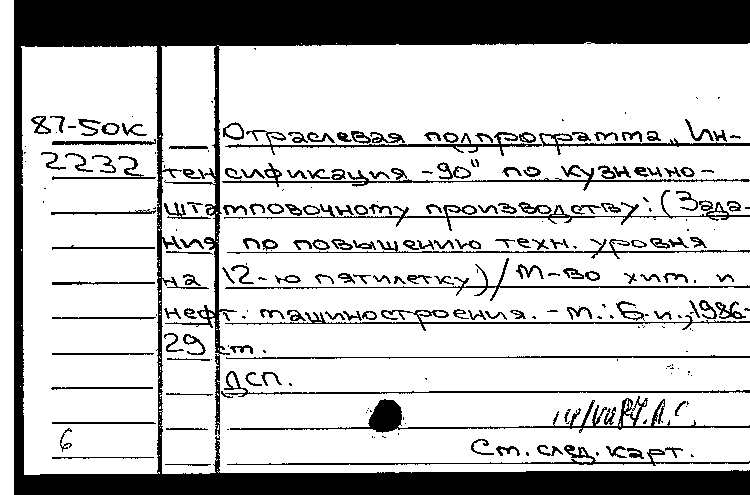 87-50к
Отраслевая подпрограмма „Ин-
2232
тенсификация -90" по кузнечно-
штамповочному производству: (Зада-
ния по повышению техн. уровня
на 12-ю пятилетку) / М-во хим. и
нефт. машиностроения. - М.: Б.и., 1986-
29 ст.
ДСП.
Л.С.
6
См. след. карт.